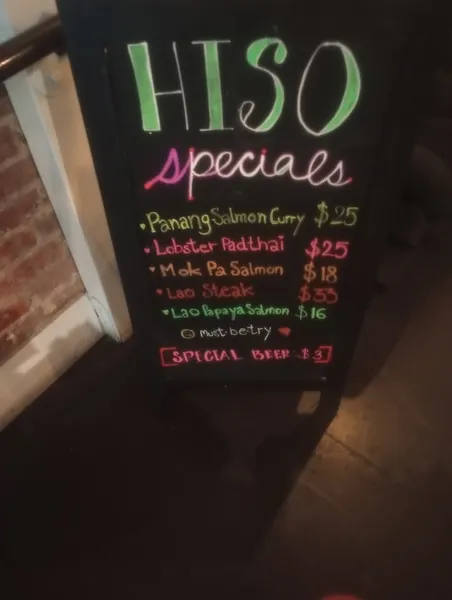 HISO
specials
Panang Salmon Curry $25
Lobster Padthai $25
Mok Pa Salmon $18
Lao Steak $33
Lao Papaya Salmon $16
must be try
[SPECIAL BEER $3]